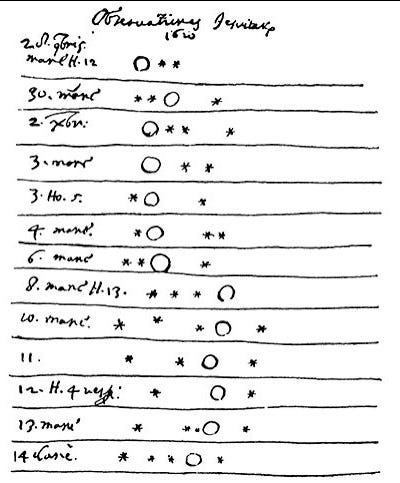 Observationes
1610
2.
mane H. 12
30. mane
2. xbr:
3. mane
3. Ho. 5.
4. mane.
6. mane
8. mane H. 13.
10. mane.
11.
12. H. 4 vesp:
13. mane
14